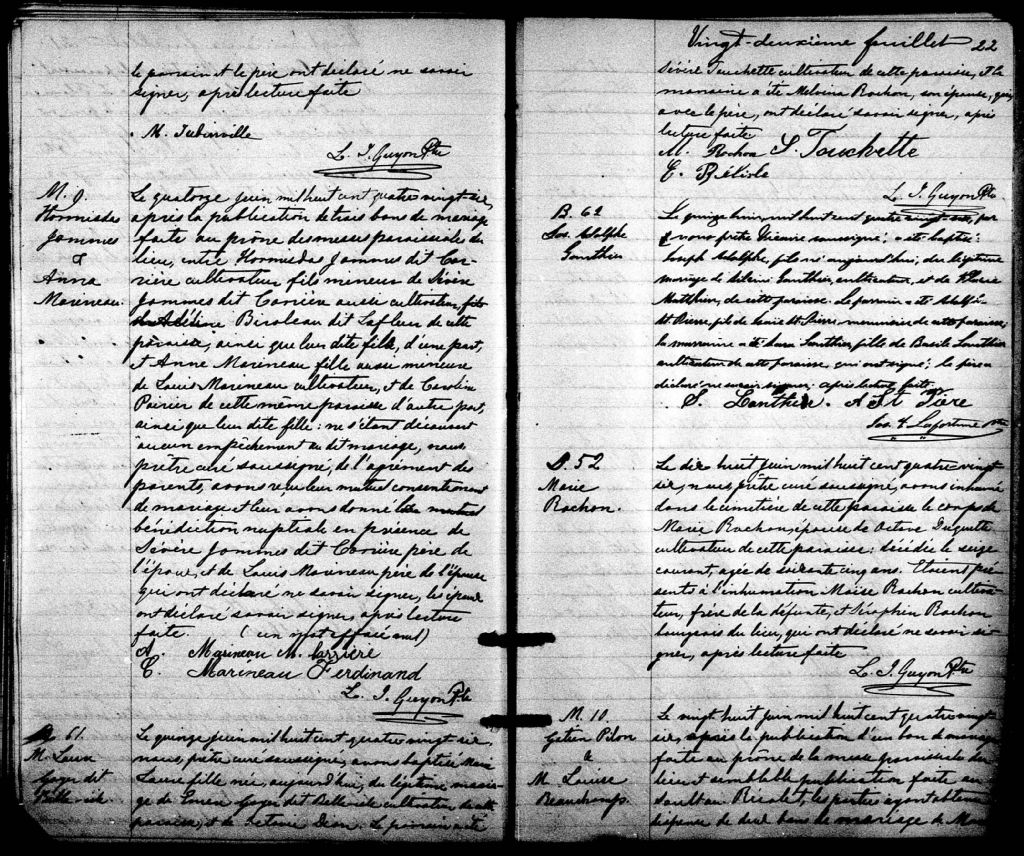 le parrain et le père ont déclaré ne savoir
signer, après lecture faite
M. Jubinville
L. J. Guyon Ptre
M. 9.
Hormisdas
Jammes
&
Anna
Marineau
Le quatorze juin mil huit cent quatre vingt-six,
après la publication de trois bans de mariage
faite au prône des messes paroissiales du
lieu, entre Hormisdas Jammes dit Car-
rière cultivateur fils mineur de Sévère
Jammes dit Carrière aussi cultivateur,
Biroleau dit Lafleur de cette
paroisse, ainsi que leur dite fille, d'une part,
et Anne Marineau fille aussi mineure
de Louis Marineau cultivateur, et de Carolin
Poirier de cette même paroisse d'autre part,
ainsi que leur dite fille: ne s'étant découvert
aucun empêchement au dit mariage, nous
prêtre curé soussigné, de l'agrément des
parents, avons reçu leur mutuel consentement
de mariage et leur avons donné la
bénédiction nuptiale en présence de
Sévère Jammes dit Carrière père de
l'époux, et de Louis Marineau père de l'épouse
qui ont déclaré ne savoir signer, les époux
ont déclaré savoir signer, après lecture
faite. (un mot effacé nul)
A. Marineau M. Carrière
C. Marineau Ferdinand
L. J. Guyon Ptre
B. 61.
M. Laura
Goyer dit
Bellisle
Le quinze juin mil huit cent quatre vingt-six,
nous, prêtre curé soussigné, avons baptisé Marie
Laura fille née, aujourd'hui, du légitime maria-
ge de Goyer dit Bellisle cultivateur de cette
paroisse, et de Le parrain a été
Vingt-deuxième feuillet 22
Sévère Touchette cultivateur de cette paroisse, et la
marraine a été Melvina Rochon, son épouse, qui,
avec le père, ont déclaré savoir signer, après
lecture faite
M. Rochon S. Touchette
E. Bélisle
L. J. Guyon Ptre
B. 62
Jos. Adolphe
Gauthier
Le quinze juin, mil huit cent quatre vingt-six, par
nous prêtre Vicaire soussigné, a été baptisé
Joseph Adolphe, fils né aujourd'hui, du légitime
mariage de Gauthier, cultivateur, et de
Matthieu, de cette paroisse. Le parrain a été Adolphe
St. Pierre, fils de Louis St. Pierre, de cette paroisse;
la marraine a été Gauthier, fille de Basile Gauthier
cultivateur de cette paroisse, qui ont signé; le père a
déclaré ne savoir signer, après lecture faite.
S. Gauthier. A St Pierre
Jos. Lafortune ptre
S. 52
Marie
Rochon.
Le dix huit juin mil huit cent quatre vingt
six, nous, prêtre curé soussigné, avons inhumé
dans le cimetière de cette paroisse le corps de
Marie Rochon, épouse de Octave Duquette
cultivateur de cette paroisse: décédée le seize
courant, agée de soixante cinq ans. Etaient pré-
sents à l'inhumation Moïse Rochon cultiva-
teur, frère de la défunte, et Séraphin Rochon
bourgeois du lieu, qui ont déclaré ne savoir si-
gner, après lecture faite
L. J. Guyon Ptre
M. 10.
Gatien Pilon
&
M. Louise
Beauchamp.
Le vingt huit juin mil huit cent quatre vingt-
six, après la publication d'un ban de mariage
faite au prône de la messe paroissiale du
lieu et semblable publication faite au
Sault au Récolet, les parties ayant obtenu
dispense de deux bans de mariage de Mon